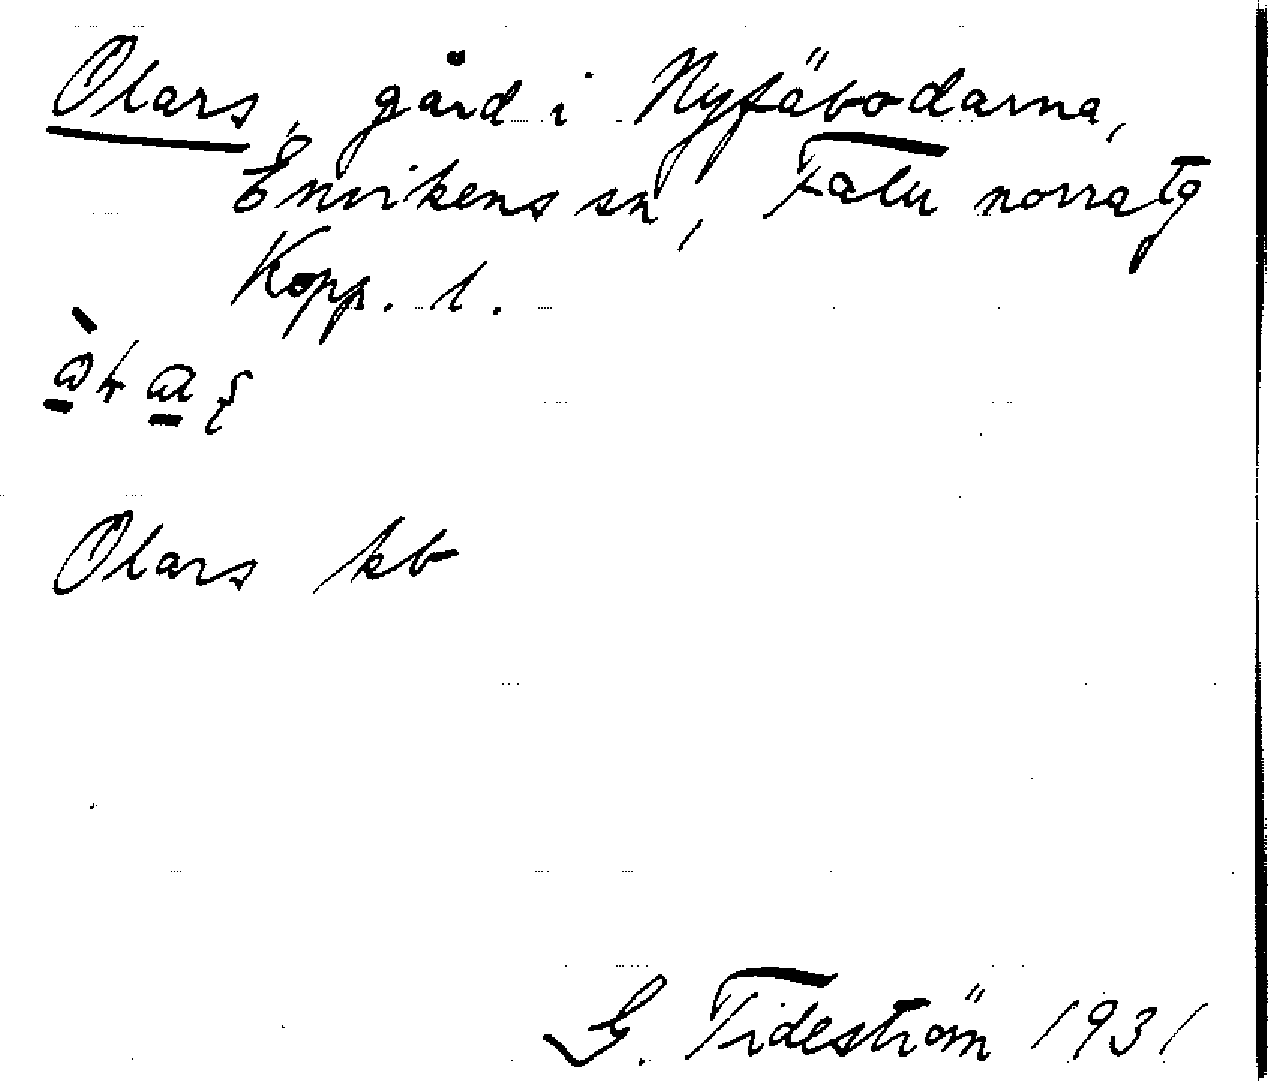 Olars, gård i Nyfäbodarna,
Envikens sn, Falu norra tg
Kopp. l.
Olars kb
G. Tideström 1931